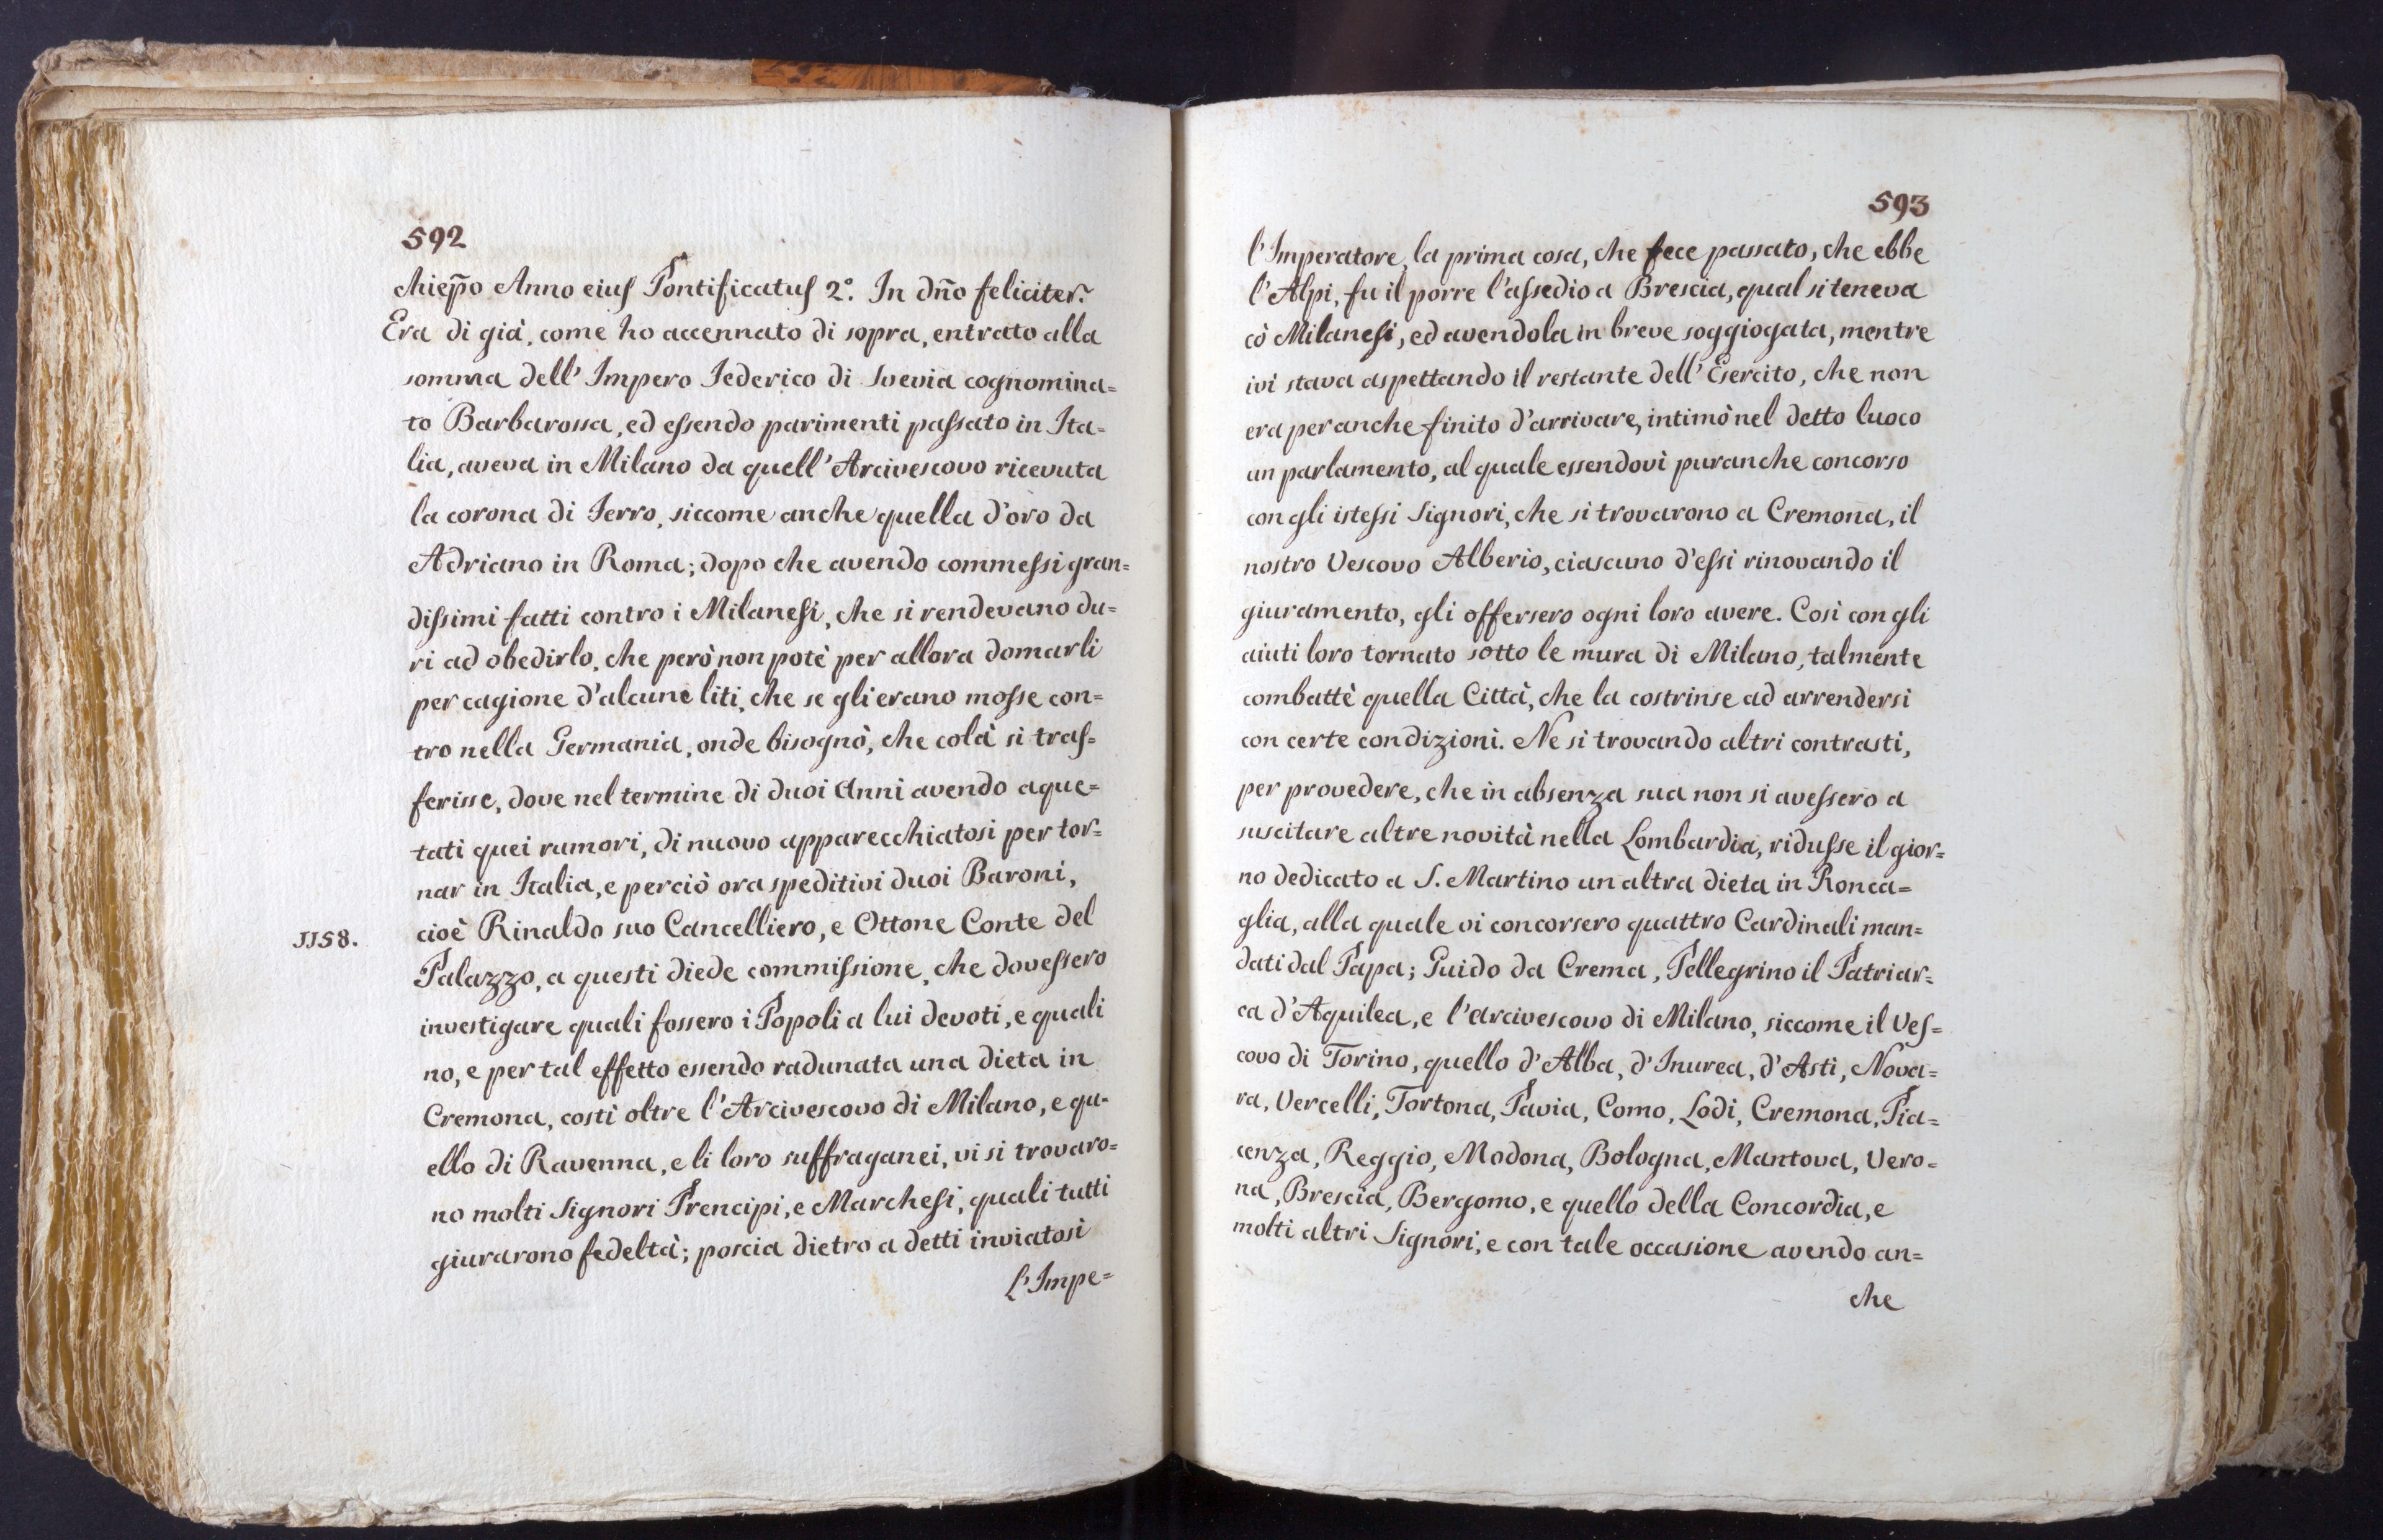 592
chiep̃o Anno eiuſ Pontificatuſ 2°. In dño feliciter.
Era di già, come ho accennato di sopra, entrato alla
somma dell' Impero Federico di Svevia cognomina=
to Barbarossa, ed eſsendo parimenti paſsato in Ita=
lia, aveva in Milano da quell' Arcivescovo ricevuta
la corona di Ferro, siccome anche quella d'oro da
Adriano in Roma; dopo che avendo commeſsi gran=
diſsimi fatti contro i Milaneſi, che si rendevano du=
ri ad obedirlo, che però non potè per allora domarli
per cagione d'alcune liti, che se gli erano moſse con=
tro nella Germania, onde bisognò, che colà si traſ=
ferisse, dove nel termine di duoi Anni avendo aque=
tati quei rumori, di nuovo apparecchiatosi per tor=
nar in Italia, e perciò ora speditivi duoi Baroni,
1158. cioè Rinaldo suo Cancelliero, e Ottone Conte del
Palazzo, a questi diede commiſsione, che doveſsero
investigare quali fossero i Popoli a lui devoti, e quali
no, e per tal effetto essendo radunata una dieta in
Cremona, costi oltre l'Arcivescovo di Milano, e qu-
ello di Ravenna, e li loro suffraganei, vi si trovaro=
no molti Signori Prencipi, e Marcheſi, quali tutti
giurarono fedeltà; poscia dietro a detti inviatosi
L'Impe=
593
l'Imperatore, la prima cosa, che fece passato, che ebbe
l'Alpi, fu il porre l'aſsedio a Brescia, qual si teneva
cò Milaneſi, ed avendola in breve soggiogata, mentre
ivi stava aspettando il restante dell' Esercito, che non
era per anche finito d'arrivare, intimò nel detto luoco
un parlamento, al quale essendovi puranche concorso
con gli isteſsi Signori, che si trovarono a Cremona, il
nostro Vescovo Alberio, ciascuno d'eſsi rinovando il
giuramento, gli offersero ogni loro avere. Così con gli
aiuti loro tornato sotto le mura di Milano, talmente
combattè quella Città, che la costrinse ad arrendersi
con certe condizioni. Ne si trovando altri contrasti,
per provedere, che in absenza sua non si aveſsero a
suscitare altre novità nella Lombardia, riduſse il gior=
no dedicato a S. Martino un altra dieta in Ronca=
glia, alla quale vi concorsero quattro Cardinali man=
dati dal Papa; Guido da Crema, Pellegrino il Patriar=
ca d'Aquilea, e l'arcivescovo di Milano, siccome il Veſ=
covo di Torino, quello d'Alba, d'Inurea, d'Asti, Nova=
ra, Vercelli, Tortona, Pavia, Como, Lodi, Cremona, Pia=
cenza, Reggio, Modona, Bologna, Mantova, Vero=
na, Brescia, Bergomo, e quello della Concordia, e
molti altri Signori, e con tale occasione avendo an=
che